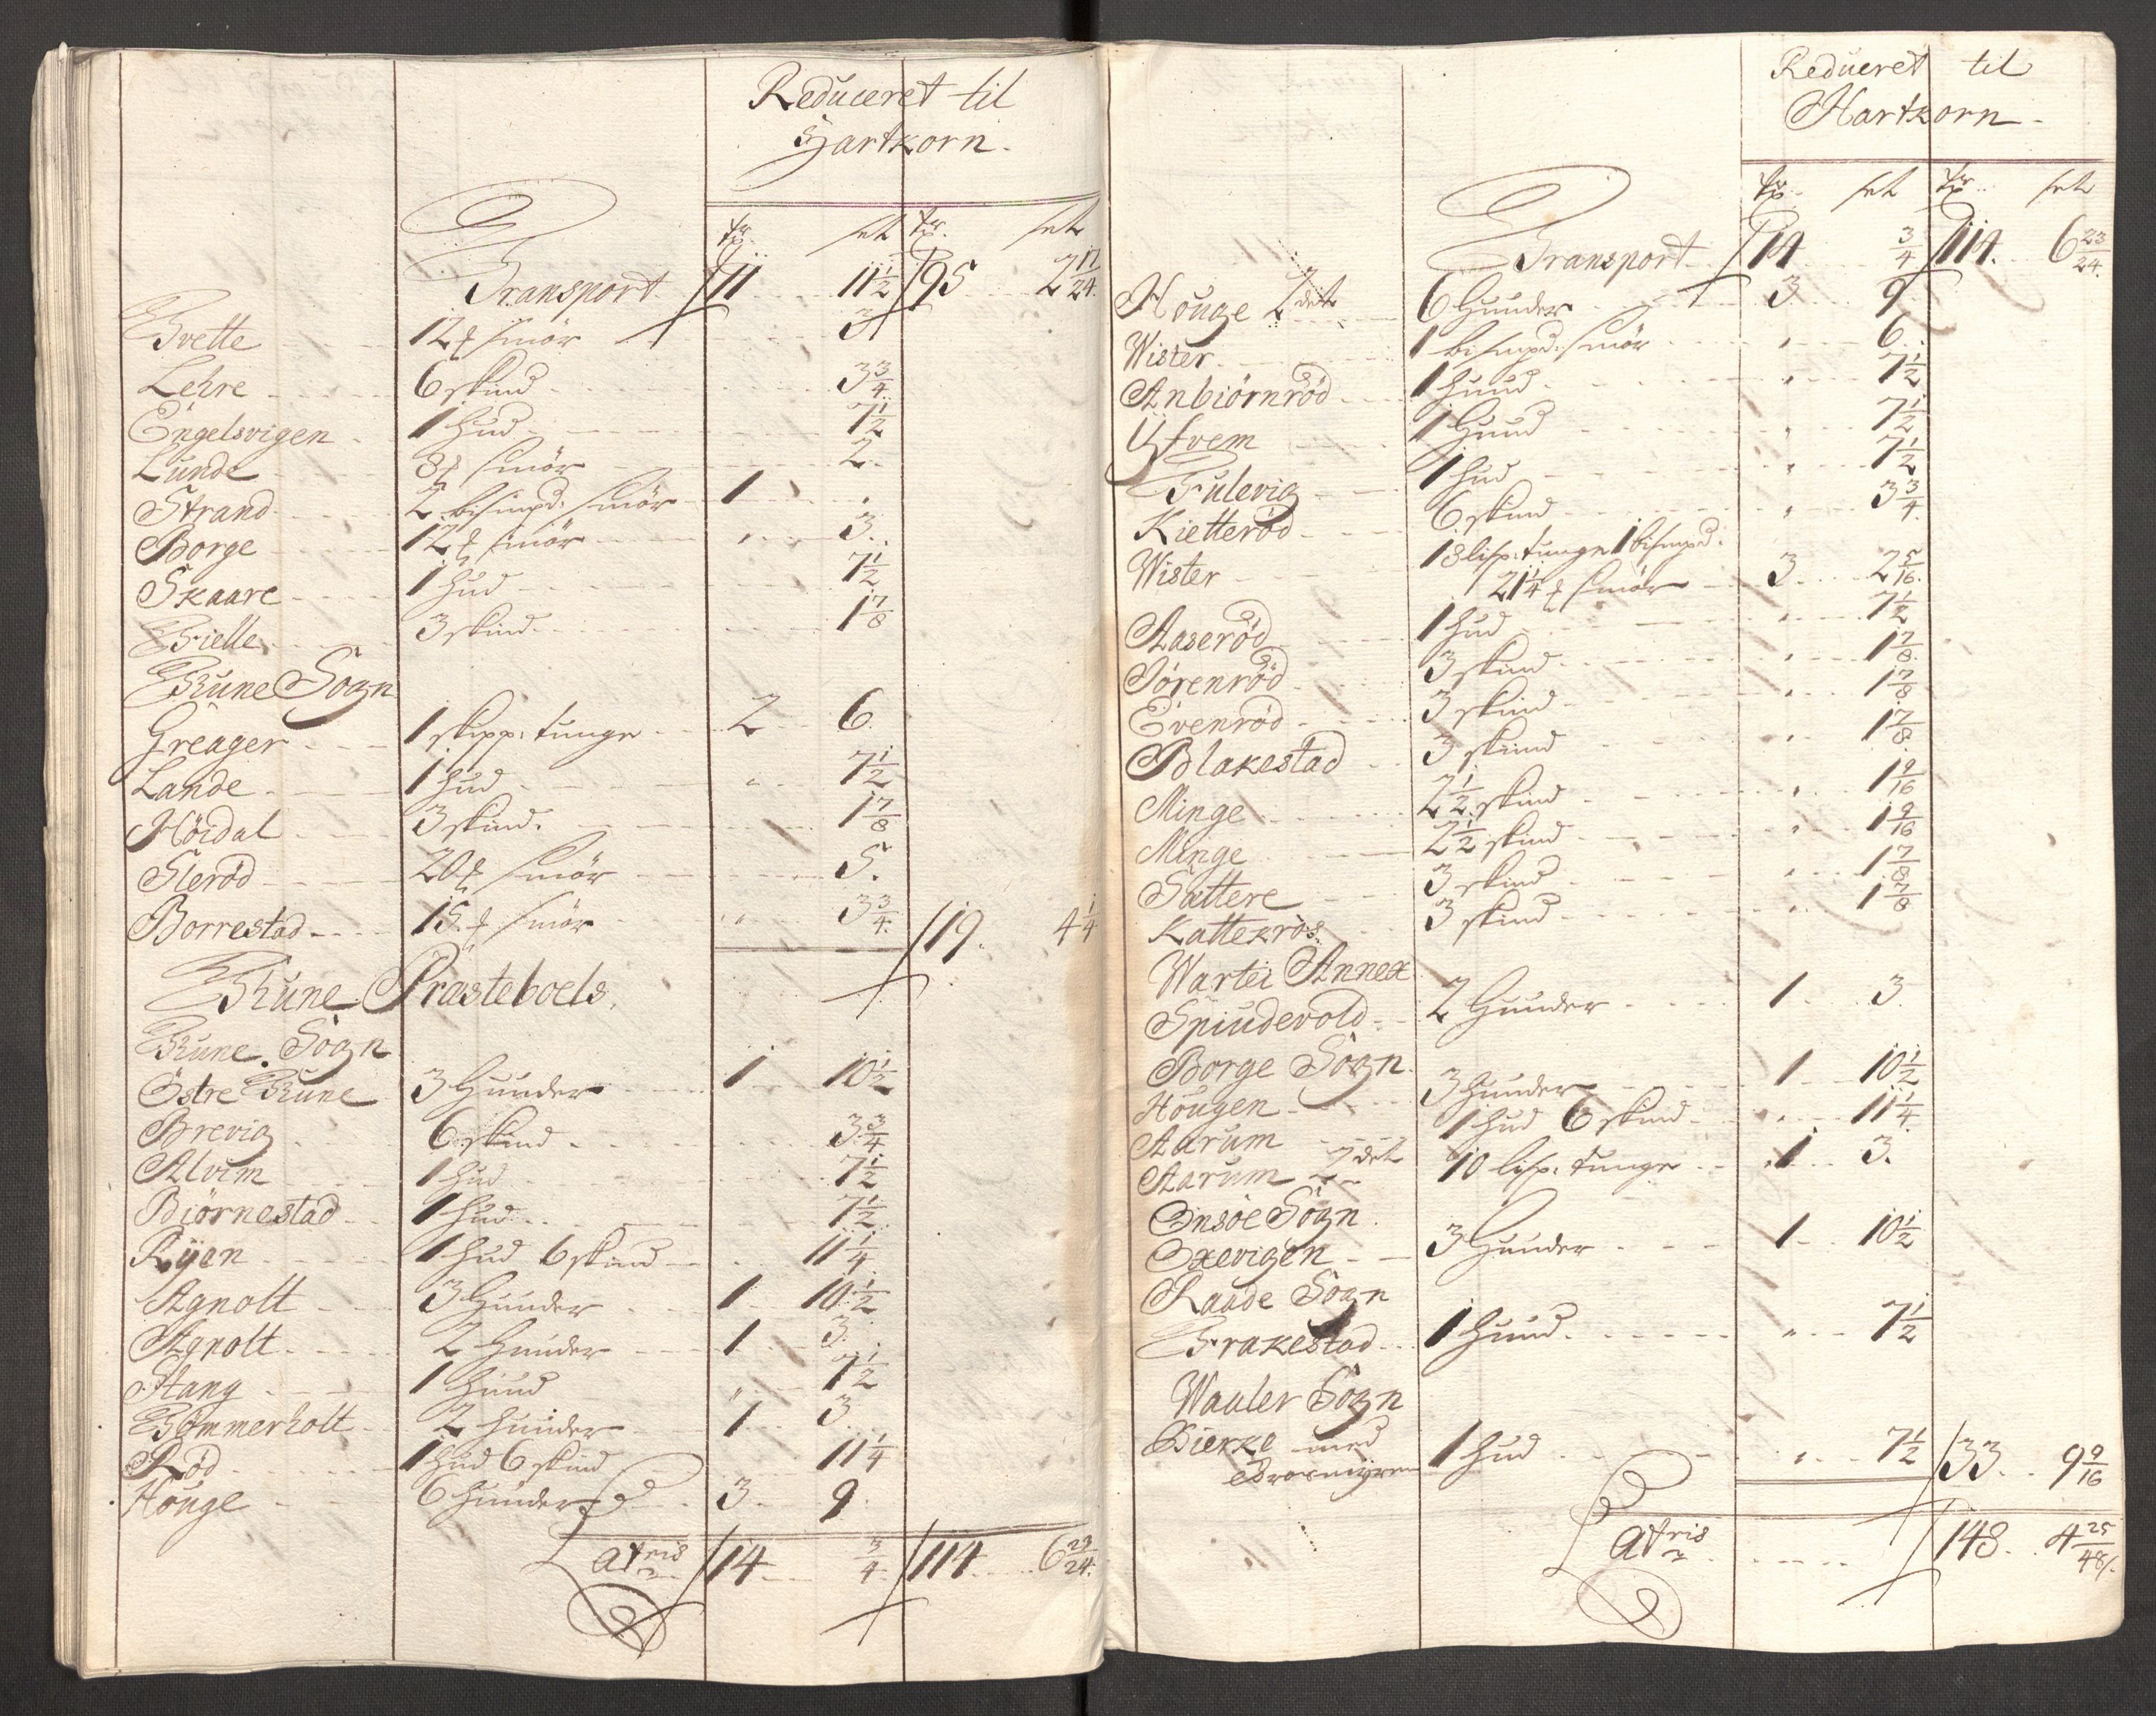 Reduceret til
Hartkorn.
tr. set tr. set
Transport 11 11 1/2 95 2 17/24.
Tvette 12 ℔ smör 3
Lehre 6 skind 3 3/4
Engelsvigen 1 hud 7 1/2
Lunde 8 ℔ smör 2.
Strand 2 bismpd: smör 1 "
Borge 12 ℔ smör " 3.
Skaare 1 hud 7 1/2
Tielle 3 skind 1 7/8
Thune Sogn
Greager 1 skipp: tunge 2 6.
Lande 1 hud " 7 1/2
Höidal 3 skind. 1 7/8
Slerød 20 ℔ smör 5.
Borrestad 15 ℔ smör " 3 3/4. 19. 4 1/4
Thune Præsteboels.
Thune Sogn
Östre Thune 3 Huuder 1 10 1/2
Brevig 6 skind 3 3/4
Alvim 1 hud 7 1/2
Biørnestad 1 hud 7 1/2
Ryen 1 hud 6 skind 11 1/4
Agnolt 3 Huuder 1 10 1/2
Agnolt 2 Huuder 1 3.
Stang 1 Huud " 7 1/2
Tommerholt 2 huuder 1 3
Rød 1 hud 6 skind 11 1/4
Houge 6 huuder 3 9.
Latris 14 3/4 114 6 23/24.
Redueret til
Hartkorn.
tr. set tr. set
Transport 14 3/4 114. 6 23/24.
Houge 2det 6 Huuder 3 9
Wister 1 bismpd: smör " 6.
Anbiörnröd 1 huud " 7 1/2
Ystvem 1 Huud " 7 1/2
Fulevig 1 hud " 7 1/2
Kietterød 6 skind " 3 3/4.
Wister 18 lisp: tunge 1 bismpd:
21 1/4 ℔ smör 3 2 5/16.
Aaserød 1 hud " 7 1/2
Jørenrød 3 skind " 1 7/8.
Evenrød 3 skind " 1 7/8
Blakestad 3 skind " 1 7/8.
Minge 2 1/2 skind " 1 9/16
Minge 2 1/2 skind " 1 9/16
Sattere 3 skind " 1 7/8
Kattekrøs 3 skind " 1 7/8
Wartei Annex
Spiudevold 2 Huuder 1 3.
Borge Sogn.
Hougen 3 huuder 1 10 1/2
Aarum 1 hud 6 skind " 11 1/4.
Aarum 2det 10 lisp: tunge 1 3.
Onsöe Sogn.
Oxevigen 3 Huuder 1 10 1/2
Raade Sogn
Frakestad 1 huud " 7 1/2
Wauler Sogn
Bierke med
1 hud " 7 1/2 33. 9 9/16
Latris 148. 4 25/48.